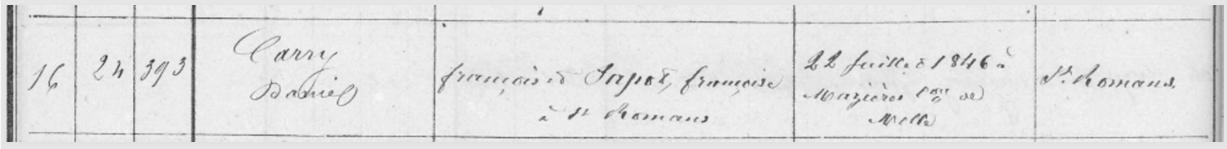 16 24 393
Carry
Daniel
françois et Sapot, françoise
à St Romans
22 Juillet 1846 à
Mazières con de
Melle
St Romans